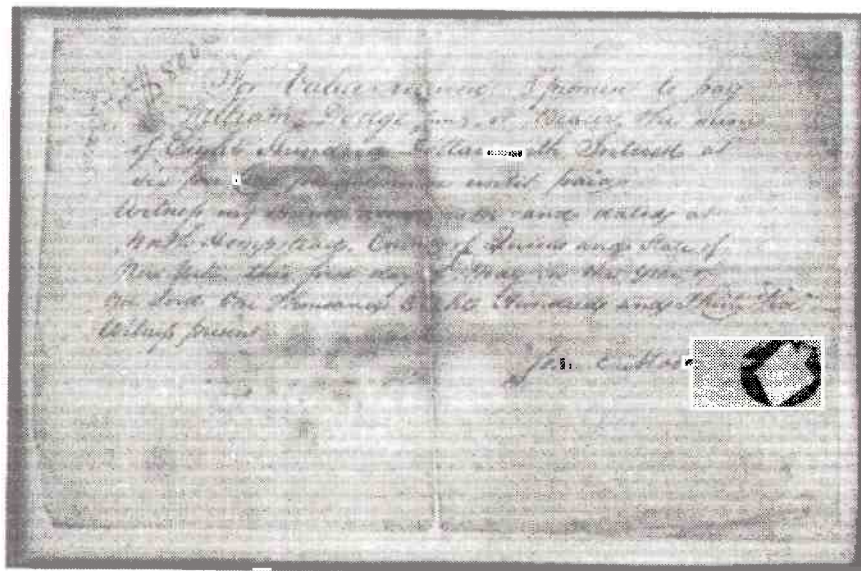 $800
For Value received I promise to pay
William Dodge or Bearer the sum
of Eight Hundred Dollars with Interest at
six per until paid
Witness my hand and dated at
North Hempstead County of Queens and State of
New York this first day of May in the year of
our Lord One Thousand Hundred and Thirty
Witness present